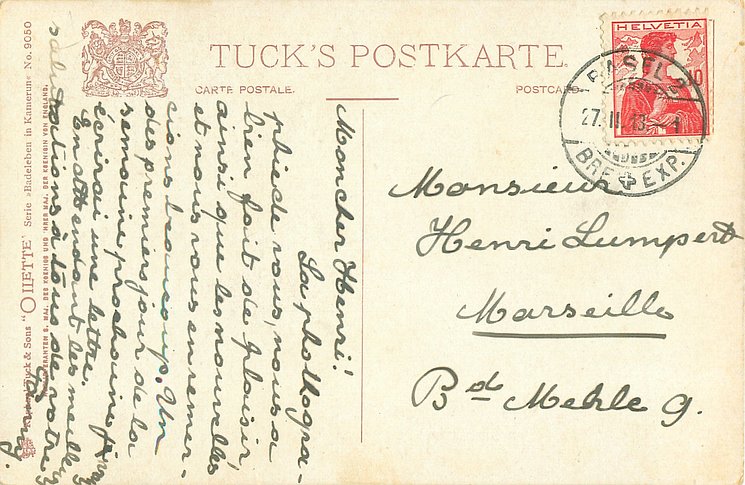 TUCK'S POSTKARTE.
CARTE POSTALE.
POSTCARD
HELVETIA
10
BASEL 2
27. II. 13. – 4
BRF. EXP.
Monsieur
Henri Lumpert
Marseille
Bd Mehle 9.
Mon cher Henri!
La photogra-
phie de vous, nous a
bien fait de plaisir,
ainsi que les nouvelles
et nous vous en remer-
cions beaucoup. Un
des premiers jour de la
semaine prochaine j'y
écrirai une lettre.
En attendant les meill
salutations à tous de votre
Raphael Tuck & Sons "OILETTE" Serie »Badeleben in Kamerun« No. 9050
HOFLIEFERANTEN S. MAJ. DES KOENIGS UND IHRER MAJ. DER KOENIGIN VON ENGLAND.